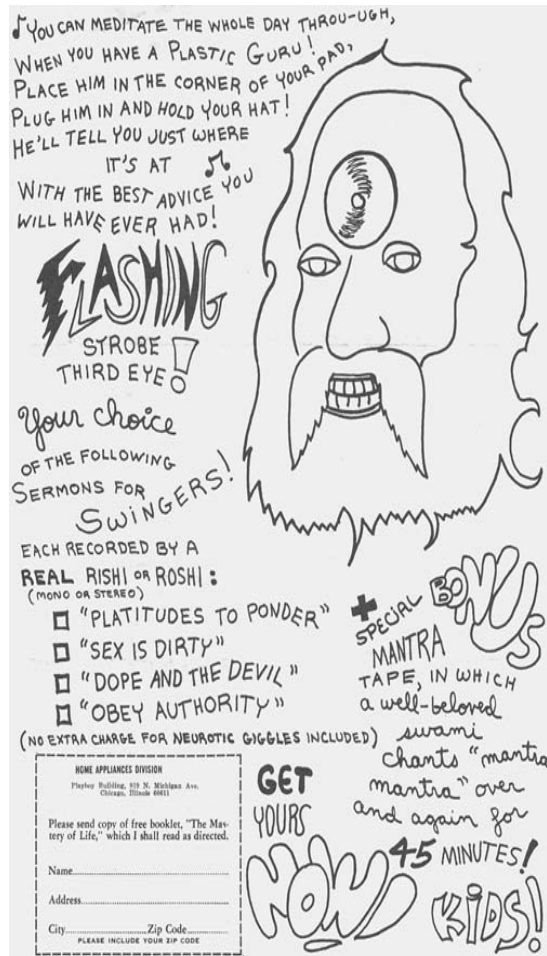 YOU CAN MEDITATE THE WHOLE DAY THROU-UGH,
WHEN YOU HAVE A PLASTIC GURU!
PLACE HIM IN THE CORNER OF YOUR PAD,
PLUG HIM IN AND HOLD YOUR HAT!
HE'LL TELL YOU JUST WHERE
IT'S AT
WITH THE BEST ADVICE YOU
WILL HAVE EVER HAD!
FLASHING
STROBE
THIRD EYE!
Your choice
OF THE FOLLOWING
SERMONS FOR
SWINGERS!
EACH RECORDED BY A
REAL RISHI OR ROSHI:
(MONO OR STEREO)
"PLATITUDES TO PONDER"
"SEX IS DIRTY"
"DOPE AND THE DEVIL"
"OBEY AUTHORITY"
(NO EXTRA CHARGE FOR NEUROTIC GIGGLES INCLUDED)
+
SPECIAL
BONUS
MANTRA
TAPE, IN WHICH
a well-beloved
swami
chants "mantra
mantra" over
and again for
45 MINUTES!
HOME APPLIANCES DIVISION
Playboy Building, 919 N. Michigan Ave.
Chicago, Illinois 60611
Please send copy of free booklet, "The Mas-
tery of Life," which I shall read as directed.
Name
Address
City Zip Code
PLEASE INCLUDE YOUR ZIP CODE
GET
YOURS
NOW!
KIDS!